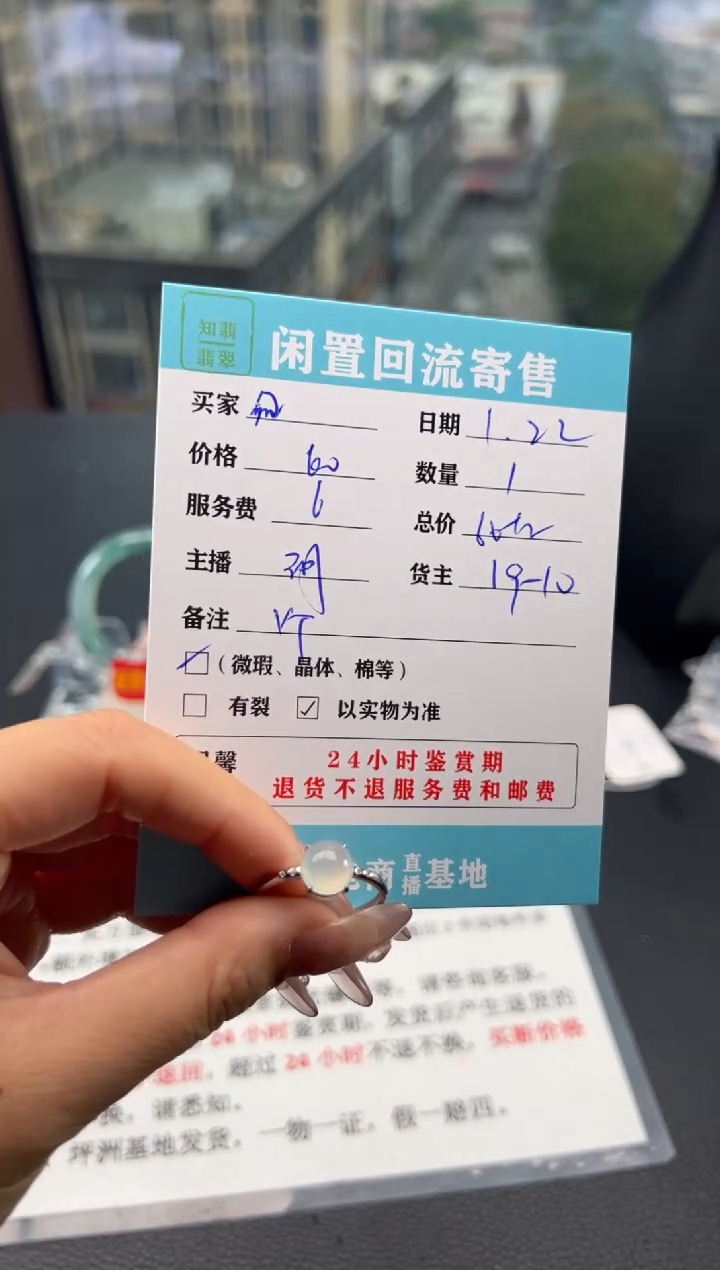 知翡
翡翠
闲置回流寄售
买家 日期 1.22
价格 60 数量 1
服务费 6 总价
主播 货主 19-10
备注
(微瑕、晶体、棉等)
有裂 ☑ 以实物为准
馨 24小时鉴赏期
退货不退服务费和邮费
商直播基地
24小时鉴赏期,发货后产生退货的
退回,超过24小时不退不换,买断价格
换,请悉知。
坪洲基地发货,一物一证,假一赔四。